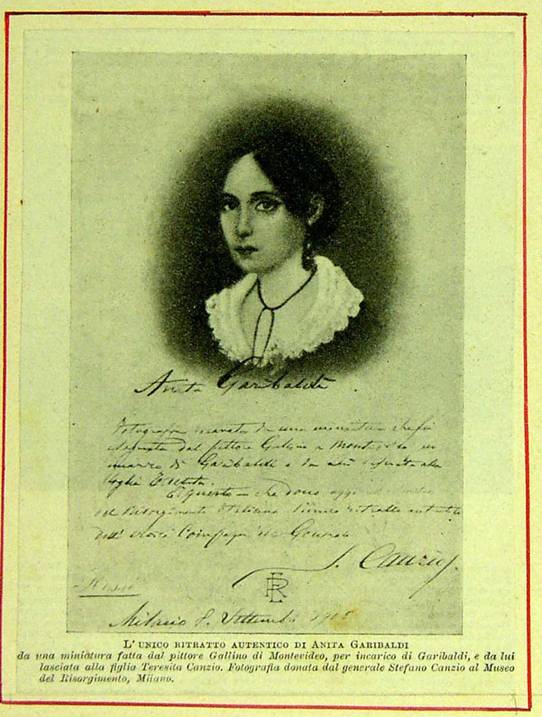 Anita Garibaldi
Fotografia ricavata da una miniatura che fu
dal pittore Gallino a Montevideo
incarico di Garibaldi e da lui alla
figlia Teresita.
È questo che dono oggi
del Risorgimento Italiano l'unico ritratto autentico
dell' eroica Compagna del Generale
S. Canzio
Milano 8. Settembre
L'UNICO RITRATTO AUTENTICO DI ANITA GARIBALDI
da una miniatura fatta dal pittore Gallino di Montevideo, per incarico di Garibaldi, e da lui
lasciata alla figlio Teresita Canzio. Fotografia donata dal generale Stefano Canzio al Museo
del Risorgimento, Milano.